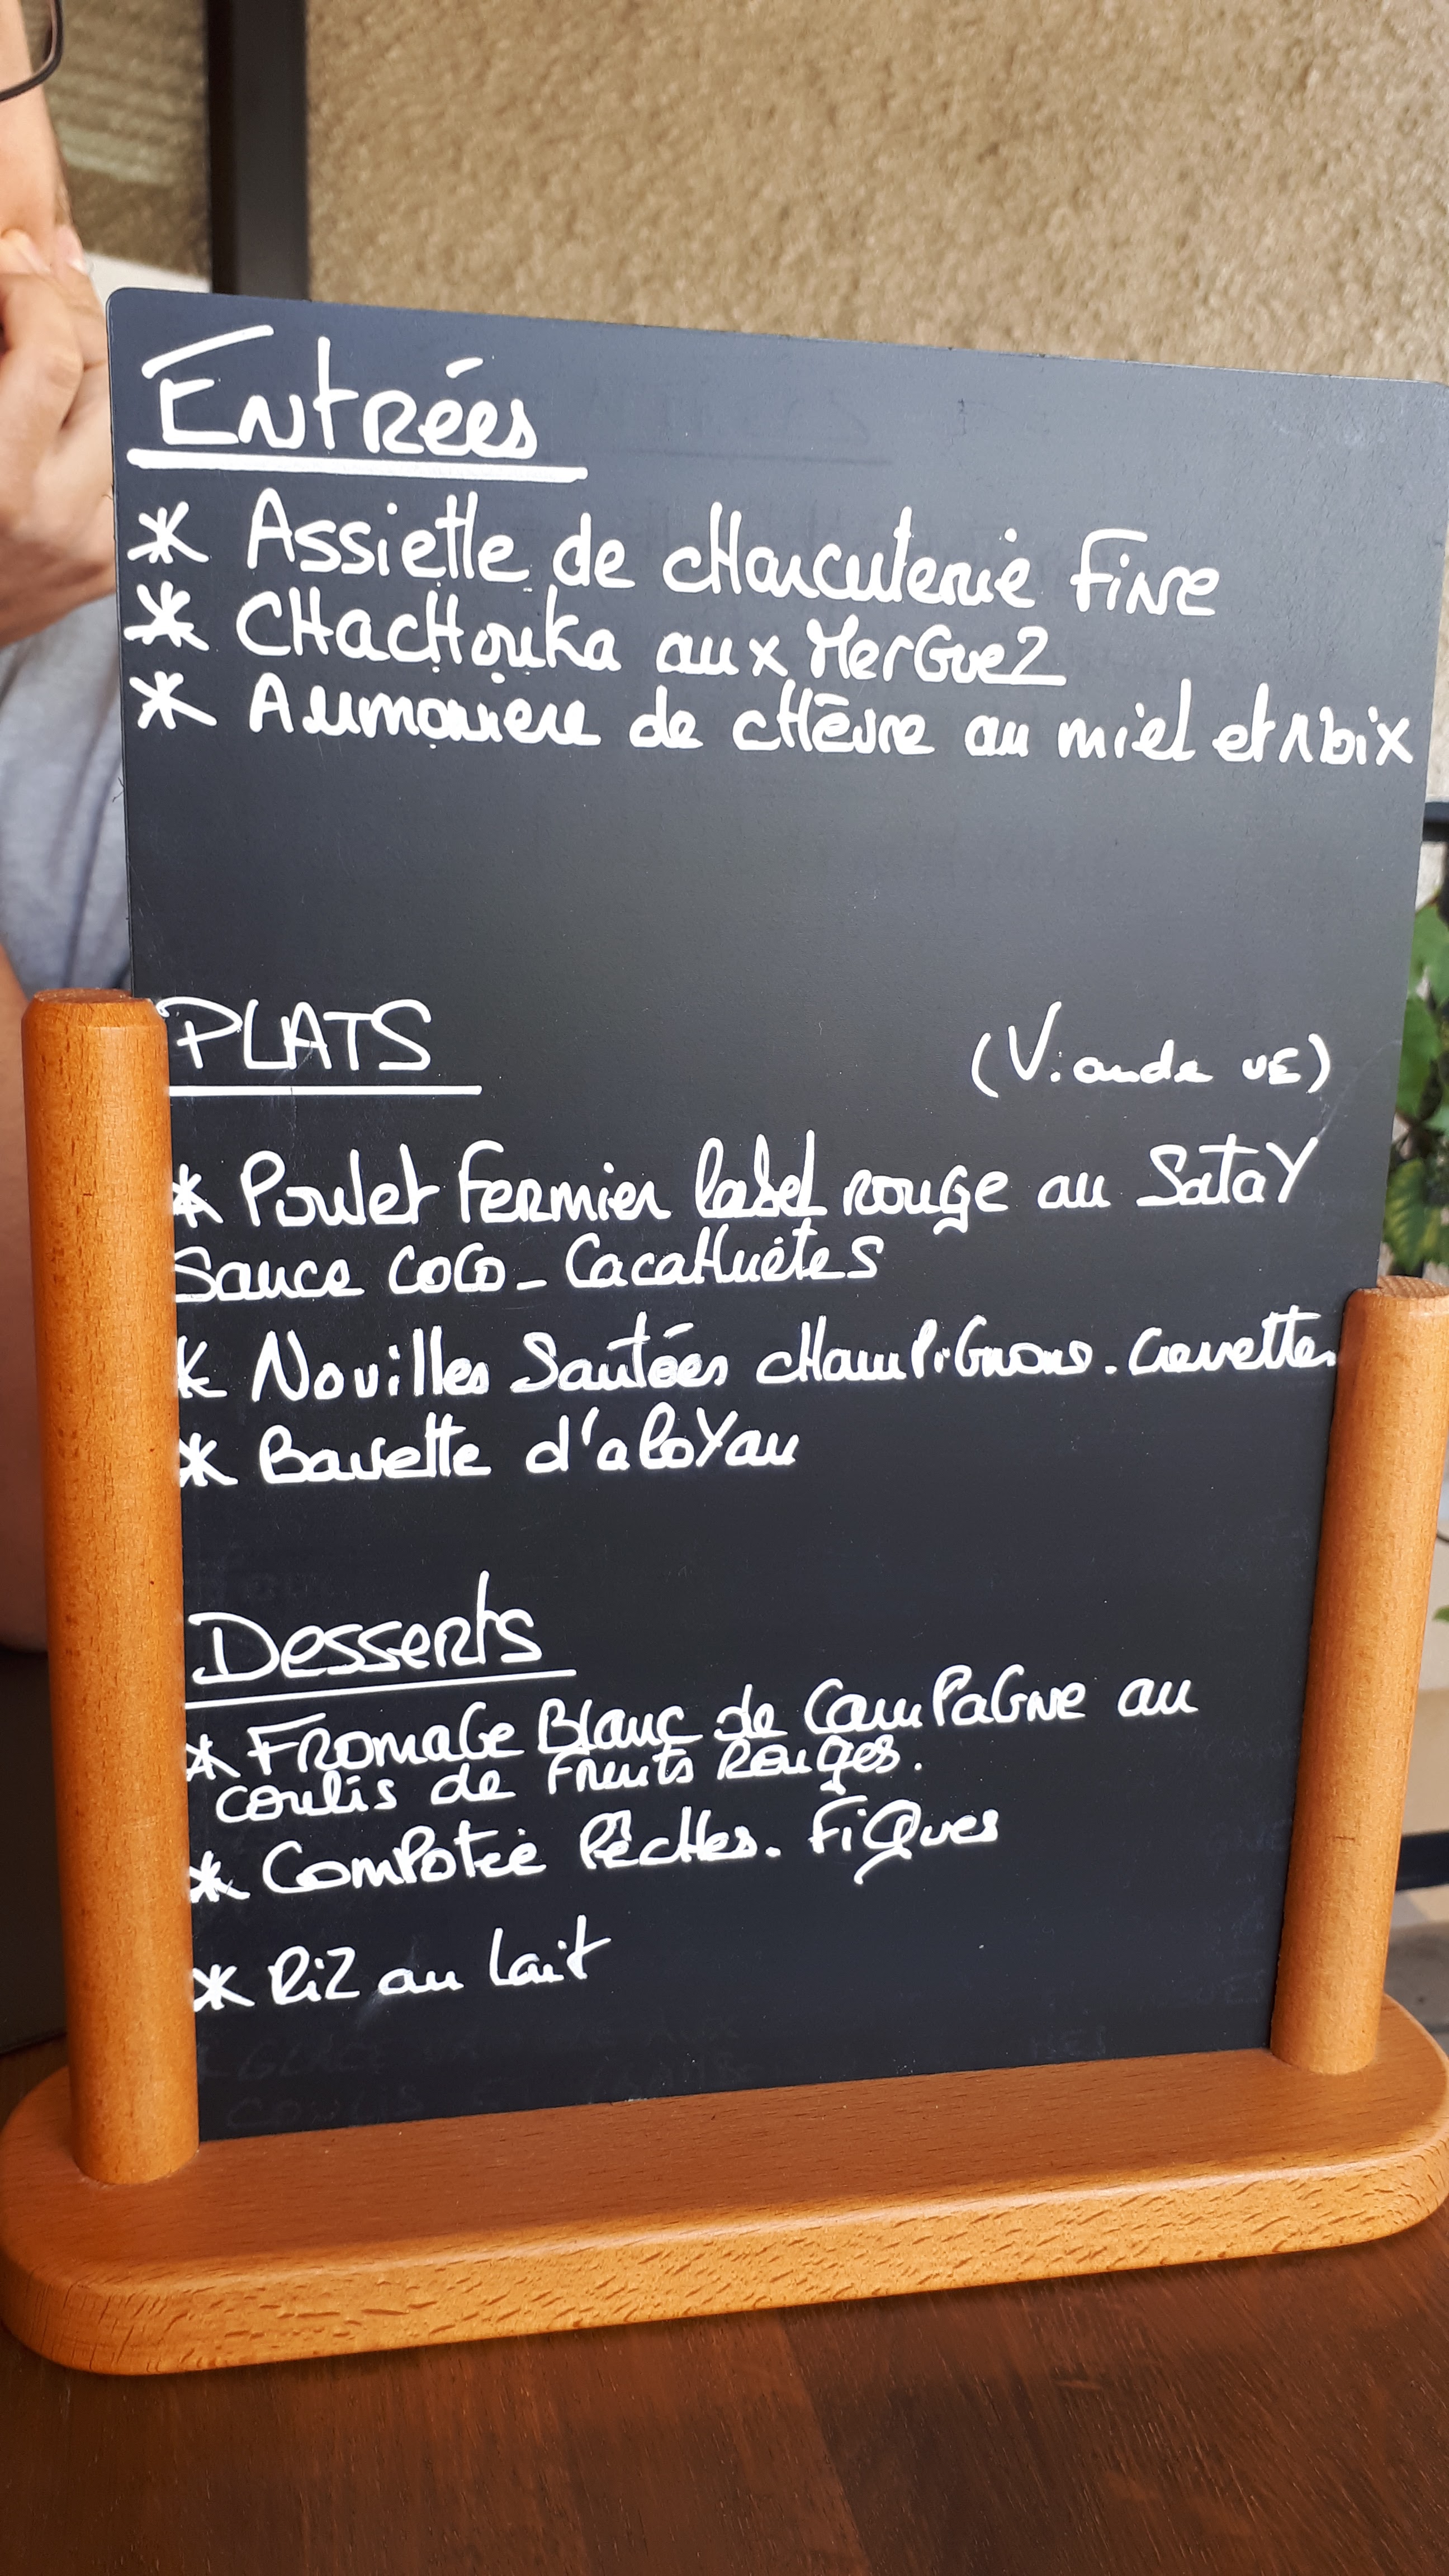 Entrées
* Assiette de charcuterie fine
* Chachouka aux Merguez
* Aumoniere de chèvre au miel et noix
PLATS (Viande UE)
* Poulet fermier label rouge au Satay
Sauce coco_Cacahuètes
* Nouilles Sautées champignons. Crevettes
* Bavette d'aloyau
Desserts
* Fromage Blanc de Campagne au
coulis de Fruits Rouges.
* Compotée Pêches. Figues
* Riz au Lait